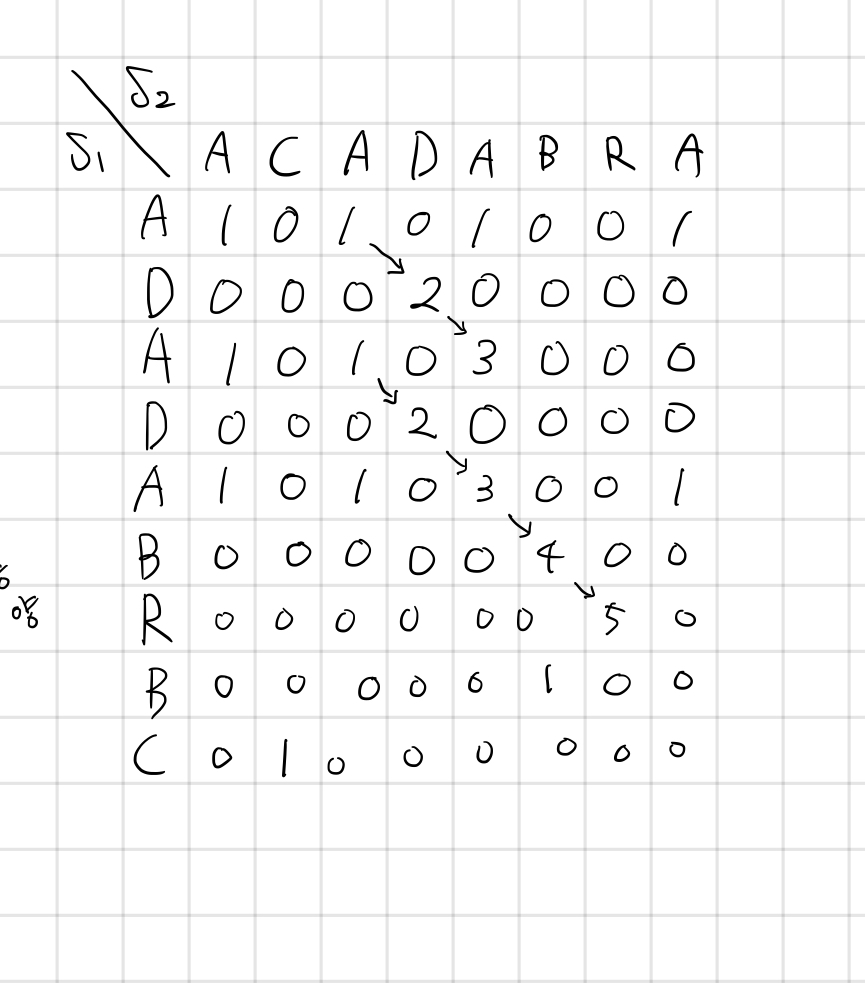 S2
S1 A C A D A B R A
A 1 0 1 0 1 0 0 1
D 0 0 0 2 0 0 0 0
A 1 0 1 0 3 0 0 0
D 0 0 0 2 0 0 0 0
A 1 0 1 0 3 0 0 1
B 0 0 0 0 0 4 0 0
R 0 0 0 0 0 0 5 0
B 0 0 0 0 0 1 0 0
C 0 1 0 0 0 0 0 0